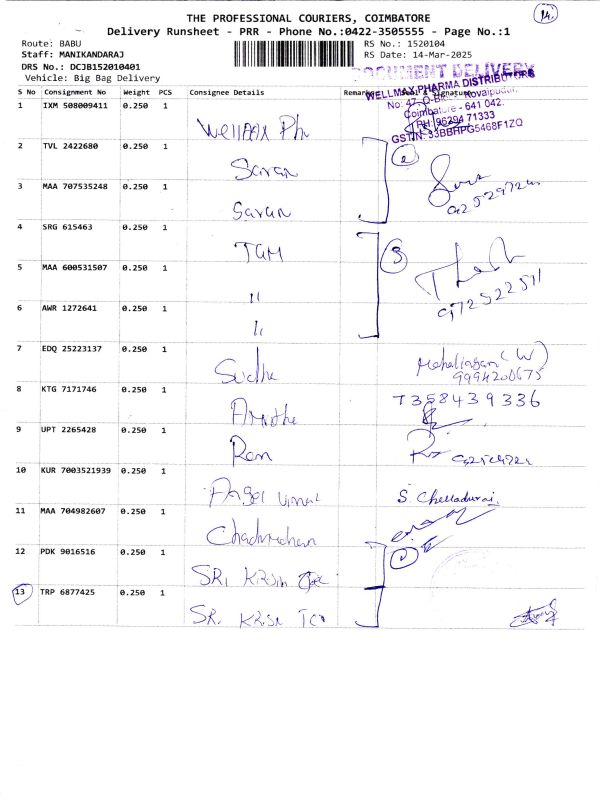 14.
THE PROFESSIONAL COURIERS, COIMBATORE
Delivery Runsheet - PRR - Phone No.:0422-3505555 - Page No.:1
Route: BABU
RS No.: 1520104
Staff: MANIKANDARAJ
RS Date: 14-Mar-2025
DRS No.: DCJB152010401
Vehicle: Big Bag Delivery
DOCUMENT DELIVERY
S No Consignment No Weight PCS Consignee Details Remarks Seal & Signature
WELLMAX PHARMA DISTRIBUTORS
Coimbatore - 641 042.
PH: 96294 71333
GSTIN: 33BBHPG5468F1ZQ
1 IXM 508009411 0.250 1
2 TVL 2422680 0.250 1 Saran
3 MAA 707535248 0.250 1 Saran
4 SRG 615463 0.250 1 TGM
5 MAA 600531507 0.250 1 "
6 AWR 1272641 0.250 1 "
7 EDQ 25223137 0.250 1 Sudha
9994200675
8 KTG 7171746 0.250 1 7358439336
9 UPT 2265428 0.250 1 Ram
10 KUR 7003521939 0.250 1 S. Chelladurai
11 MAA 704982607 0.250 1
12 PDK 9016516 0.250 1 SRI
13 TRP 6877425 0.250 1 SRI